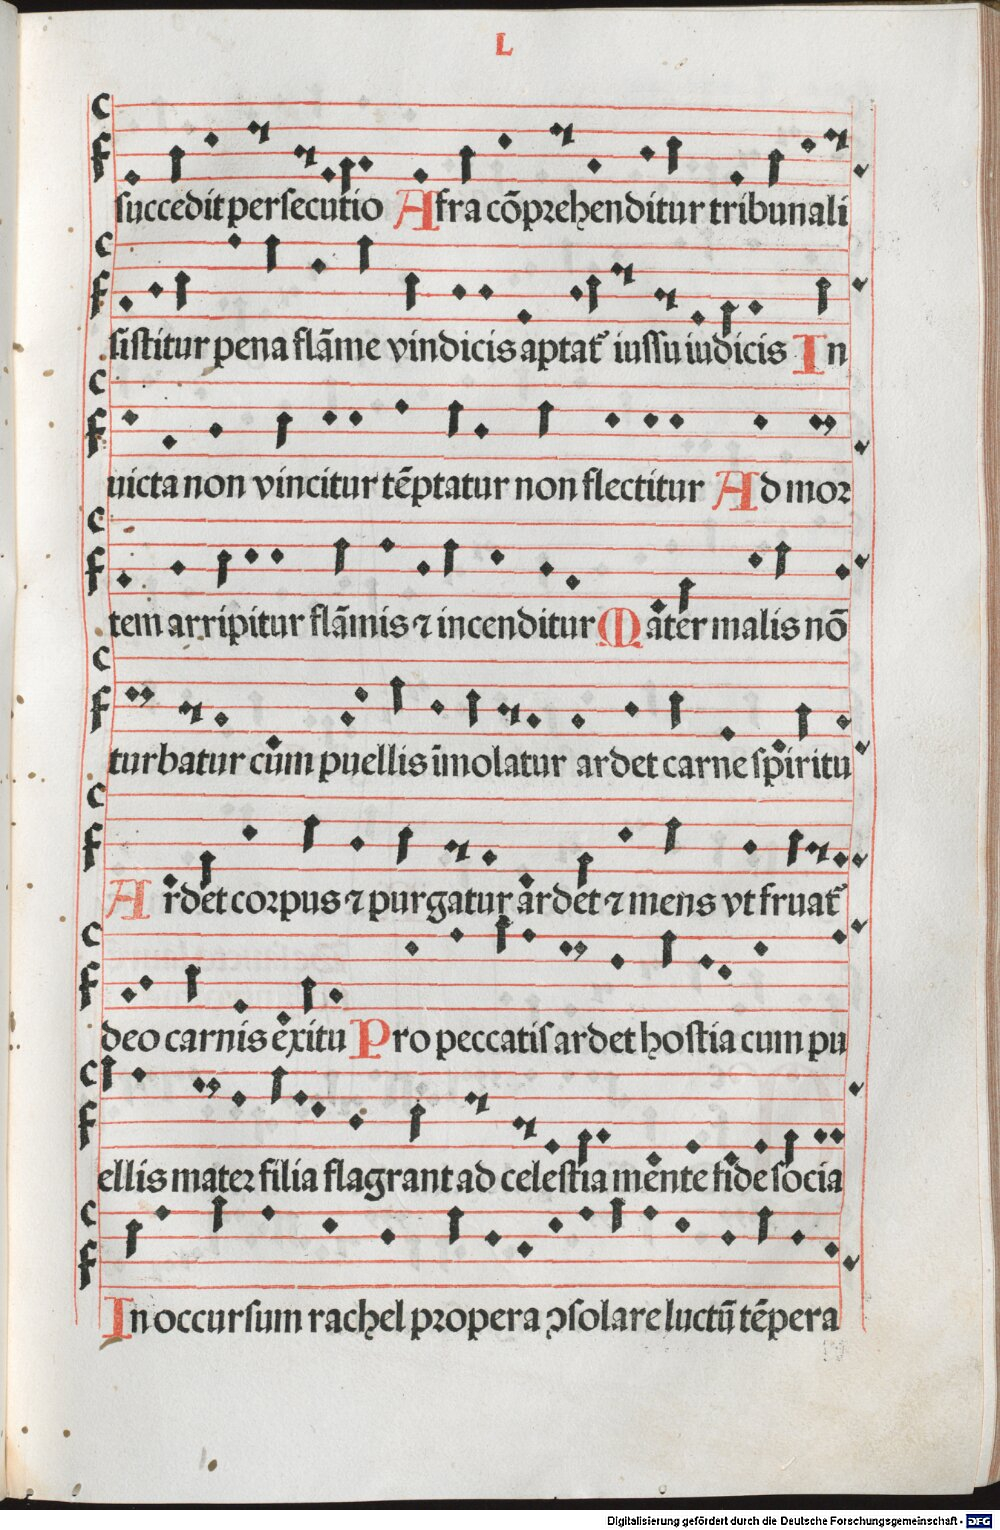 L
succedit persecutio Afra cõprehenditur tribunali
sistitur pena flãme vindicis aptat᷑ iussu iudicis In
uicta non vincitur tẽptatur non flectitur Ad mor
tem arripitur flãmis ⁊ incenditur Mater malis nõ
turbatur cum puellis ĩmolatur ardet carne spiritu
Ardet corpus ⁊ purgatur ardet ⁊ mens vt fruat᷑
deo carnis exitu Pro peccatis ardet hostia cum pu
ellis mater filia flagrant ad celestia mente fide socia
In occursum rachel propera ꝯsolare luctũ tẽpera
Digitalisierung gefördert durch die Deutsche Forschungsgemeinschaft - DFG